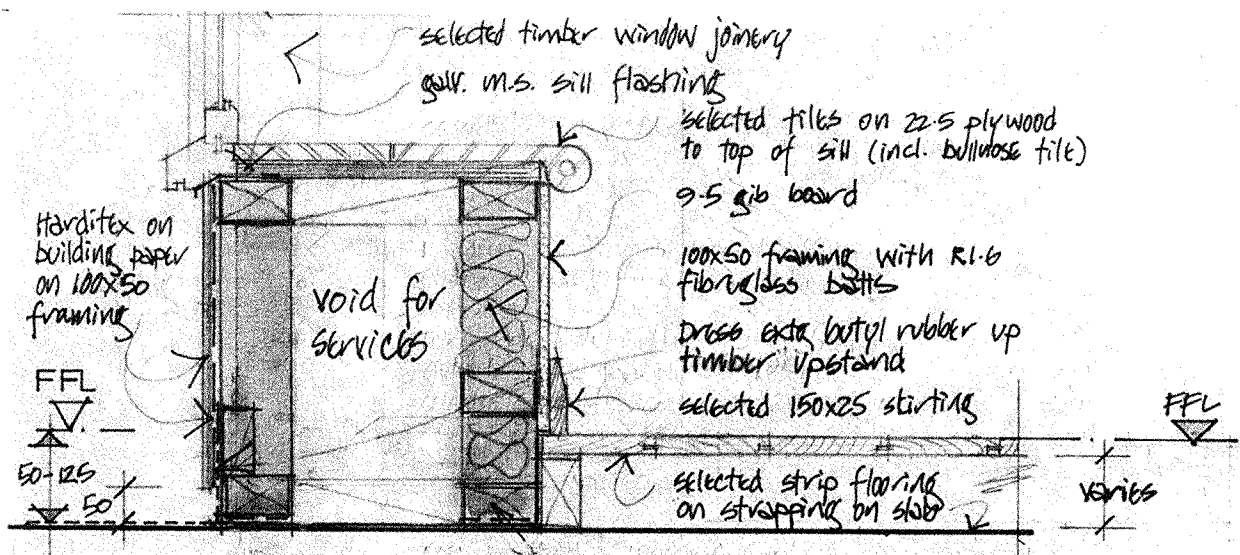 selected timber window joinery
galv. m.s. sill flashing
selected tiles on 22.5 plywood
to top of sill (incl. bullnose tile)
9.5 gib board
100x50 framing with R1.6
fibreglass batts
Dress extg butyl rubber up
timber upstand
selected 150x25 skirting
selected strip flooring
on strapping on slab
Harditex on
building paper
on 100x50
framing
void for
services
FFL
50-125
50
FFL
varies